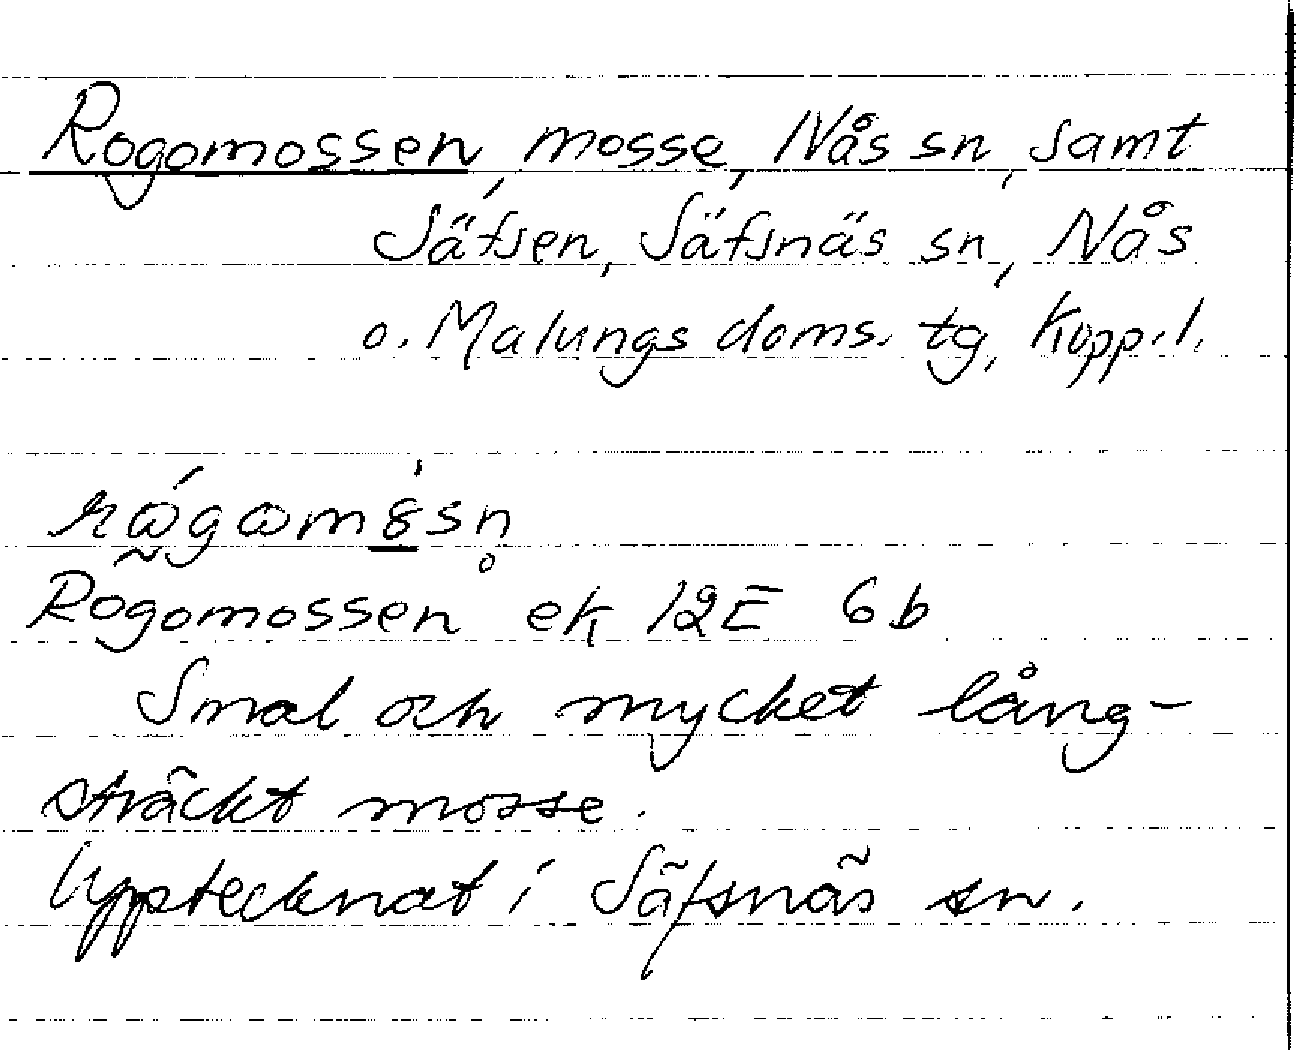 Rogomossen, mosse, Nås sn, samt
Säfsen, Säfsnäs sn, Nås
o. Malungs doms. tg, Kopp. l.
Rogomossen ek 12E 6b
Smal och mycket lång-
sträckt mosse.
Upptecknat i Säfsnäs sn.